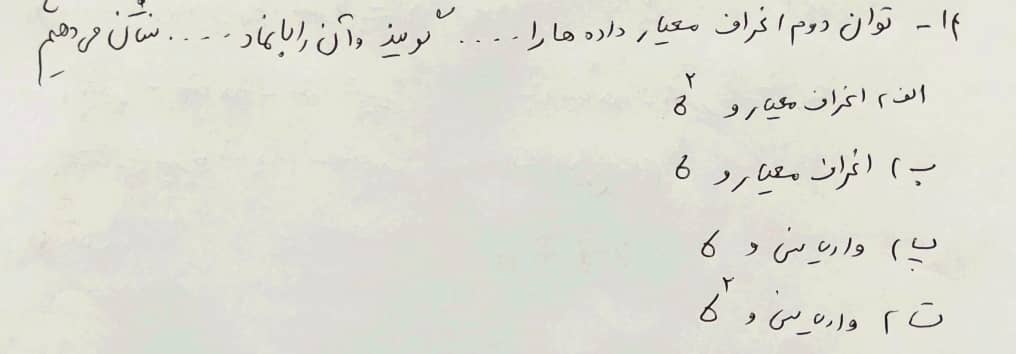 ۱۴- توان دوم انحراف معیار داده ها را .... گویند و آن را با نماد .... نشان می دهیم
الف) انحراف معیار و σ²
ب) انحراف معیار و σ
پ) واریانس و σ
ت) واریانس و σ²